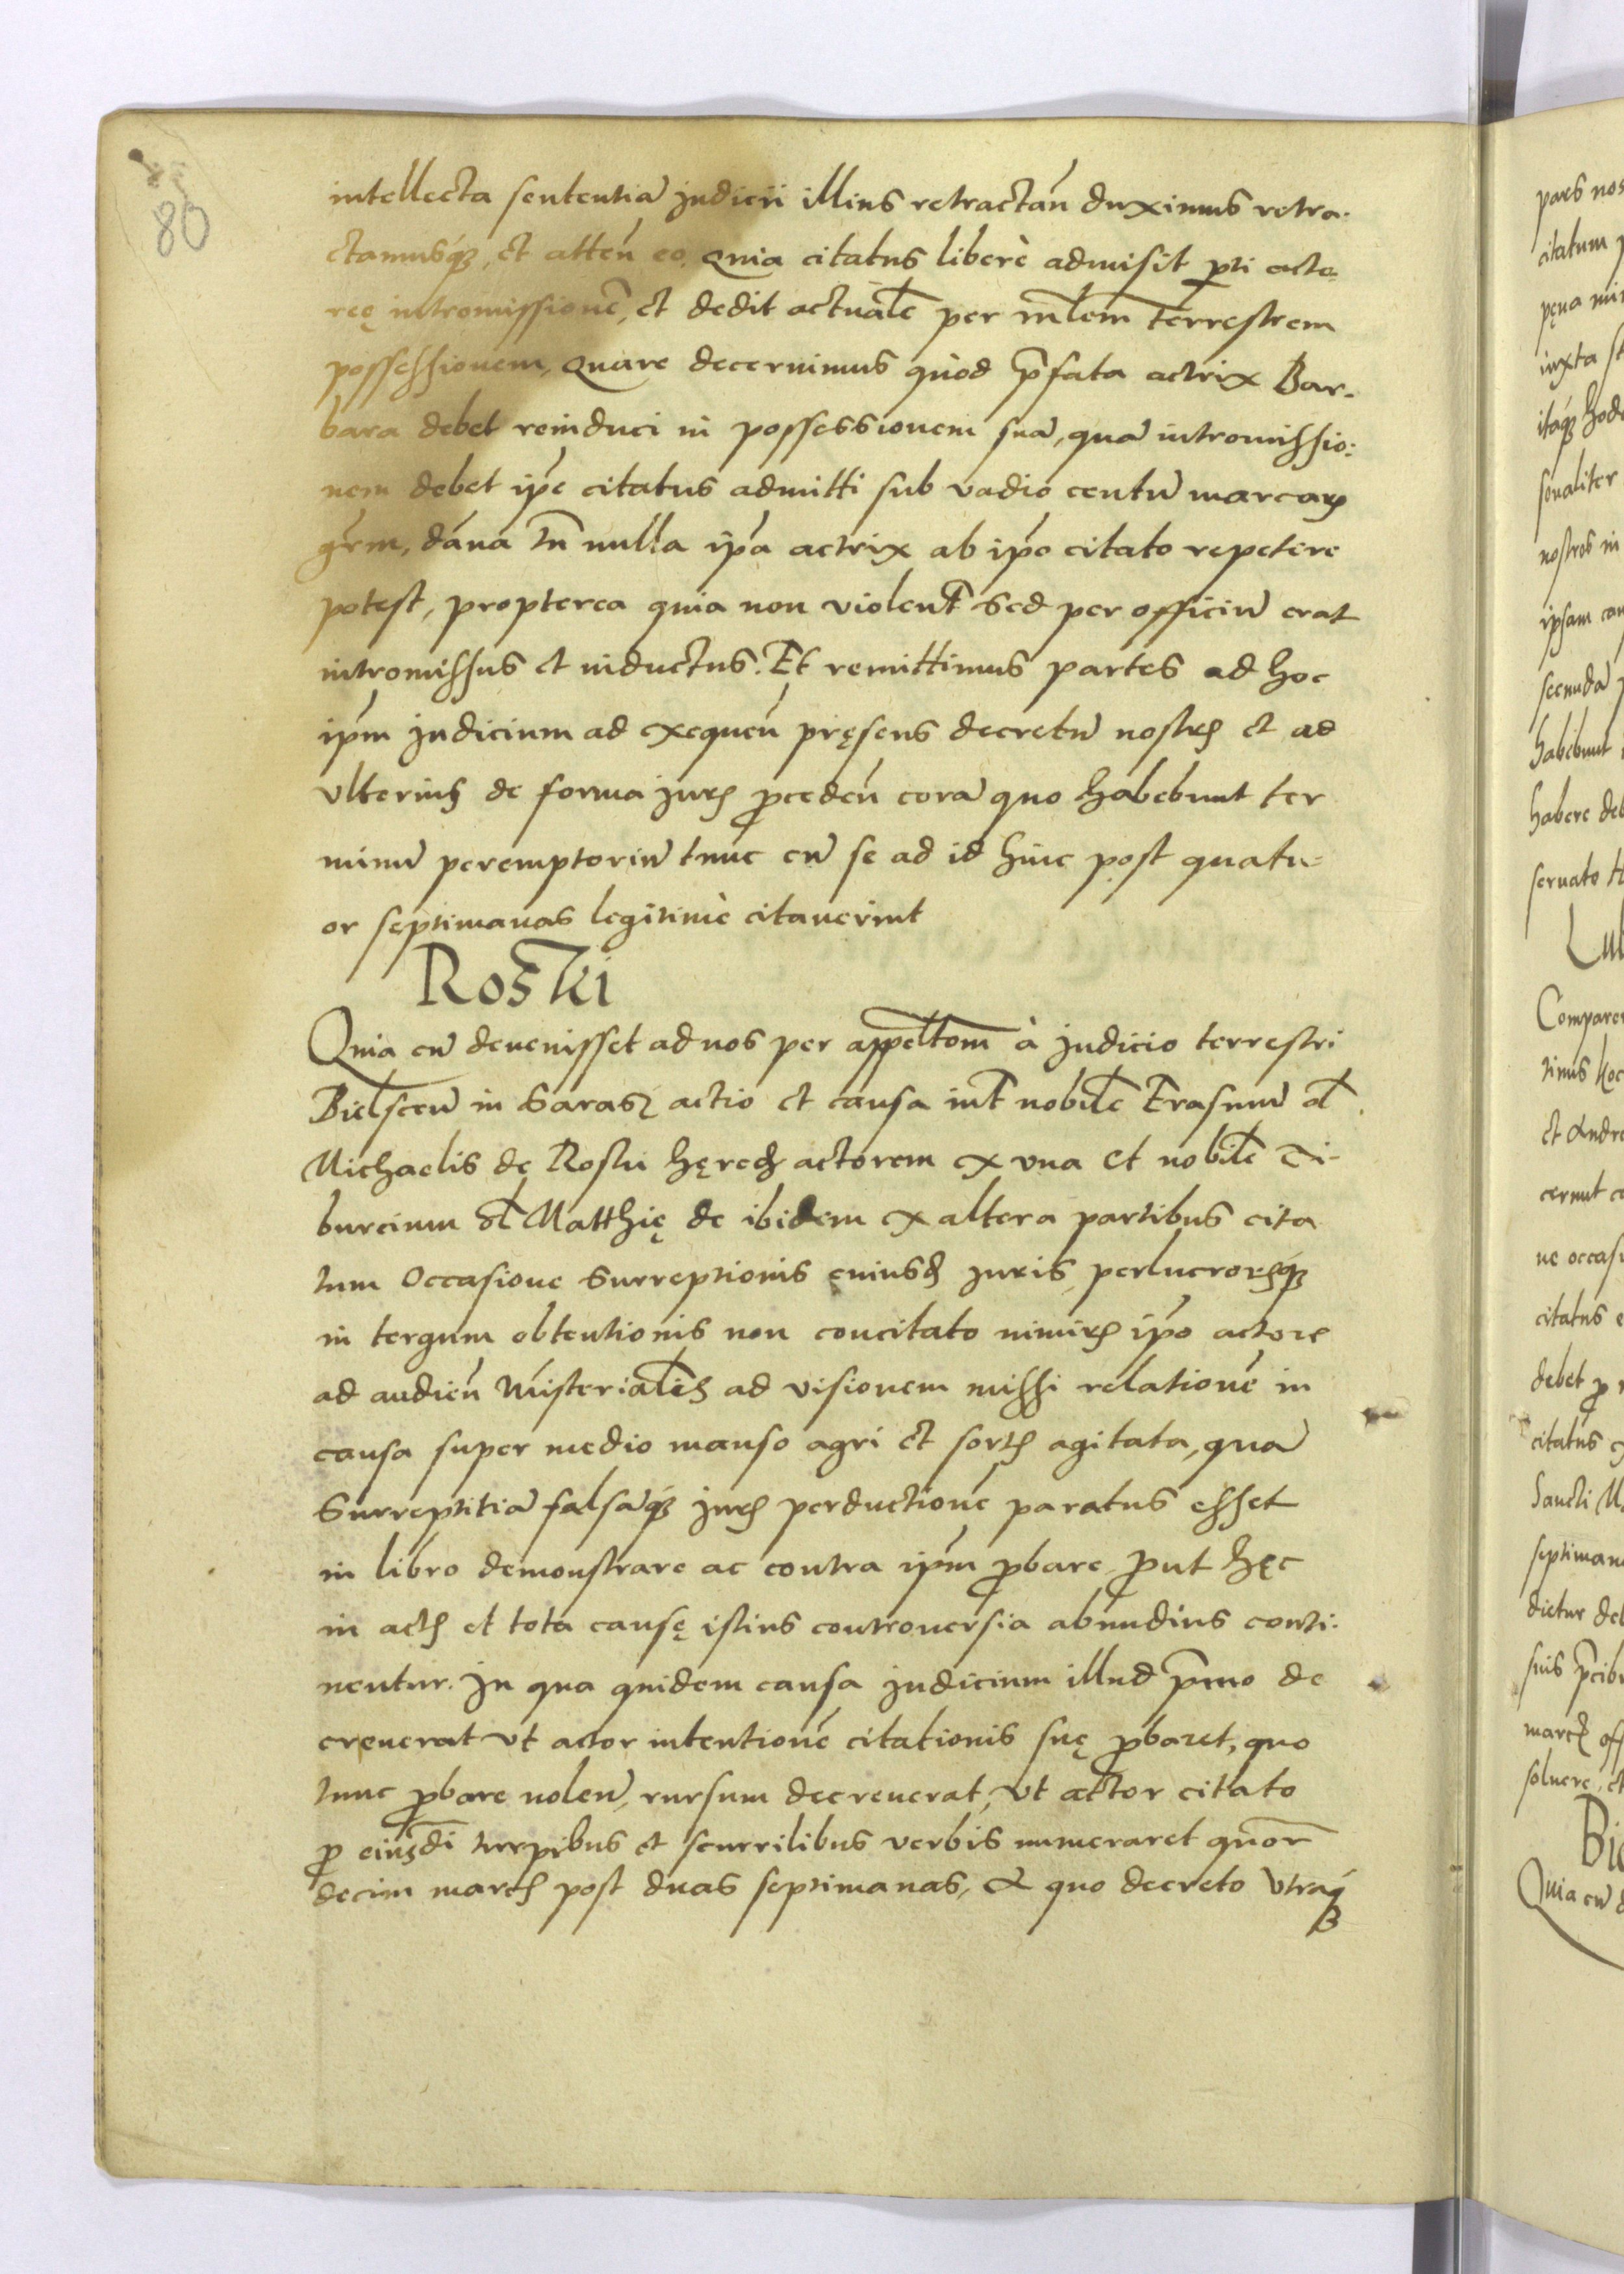 80
intellecta sententiā Judicii illius retractan̄ duximus retra-
ctamusq́ꝫ, et atten̄ eo, quia citatus liberè admisit ꝑti acto-
reę intromissionē, et dedit actualē per mlem̄ Terrestrem
possessionem, Quare decernimus quòd p̄fata actrix Bar-
bara debet reinduci in possessionem suā, quā intromissio-
nem debet ipē citatus admitti sub vadio centū marcarꝫ
gr̄m, dāna tn̄ nulla ipā actrix ab ipō citato repetere
potest, propterea quia non violent̄ Sed per officiū erat
intromissus et inductus. Et remittimus partes ad hoc
ipm̄ Judicium ad exequen̄ pręsens decretū nostrꝫ et ad
vlterius de forma Jurꝭ ꝓceden̄ corā quo habebunt ter
minū peremptoriū tunc cū se ad id hinc post quatu-
or septimanas legitimè citauerint
Rosz̄ki
Quia cū deuenisset ad nos per appellt̄om à Judicio terrestri
Bielsceñ in Sarasz actio et causa int̄ nobilē Erasmū ol̄
Michaelis de Rosku hęredꝭ actorem ex vna et nobilē Ti-
burcium ol̄ Matthię de ibidem ex altera partibus cita
tum Occasione Surreptionis cuiusdꝫ Juris, perlucrorꝫq́ꝫ
in tergum obtentionis non concitato nimirꝫ ipō actore
ad audien̄ Mīsterialis ad visionem missi relationē in
causa super medio manso agri et sortꝭ agitata, quā
Surreptitiā falsāq́ꝫ Jurꝭ perductionē paratus esset
in libro demonstrare ac contra ipm̄ ꝓbare, ꝓut hęc
in actꝭ et tota causę istius controuersia abundius conti-
nentur. In qua quidem causa Judicium illud p̄mo de
creuerat vt actor intentionē citationis suę ꝓbaret, quo
tunc ꝓbare nolen̄, rursum decreuerat, vt actor citato
ꝓ eiusdī turpibus et scurrilibus verbis numeraret quor̄
decim marcꝭ post duas septimanas, A quo decreto vtraq́ꝫ
pars nos
citatum
pęna
iuxta st
itaq́ꝫ hod
nostros in
secundā
habebunt
habere deb
seruato
Lub
Comparen
et Andre
cernut
ne occasi
citatus e
debet ꝓ
citatus
Sancti M
septimana
dictur deb
suis p̄cib
marcꝭ off
soluere, et
Bie
Quia cū d